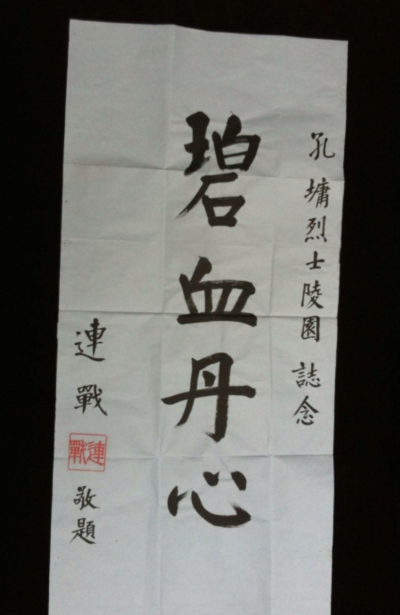 孔墉烈士陵園 誌念
碧血丹心
連戰
連戰
敬題